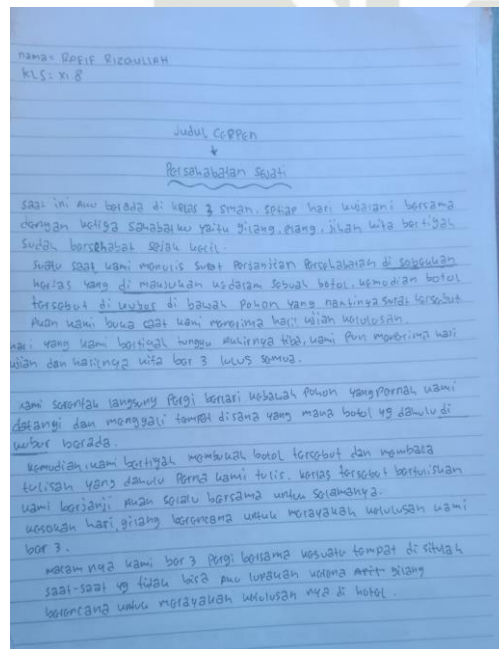 nama: RAFIF RIZQULLAH
KLS: XI 8
Judul CERPEN
Persahabatan Sejati
saat ini aku berada di kelas 3 sman. setiap hari kujalani bersama
dengan ketiga sahabatku yaitu gilang, elang, jihan kita bertigah
sudah bersehabat sejak kecil.
suatu saat kami menulis surat Perjanjian Persahabatan di sebuah
kertas yang di masukan kedalam sebuah botol, kemudian botol
tersebut di kubur di bawah Pohon yang nantinya surat tersebut
akan kami buka saat kami menerima hasil ujian kelulusan.
hari yang kami bertigah tunggu akhirnya tiba, kami pun menerima hasil
ujian dan hasilnya kita ber 3 lulus semua.
kami serentak langsung Pergi berlari kebawah Pohon yang Pernah kami
datangi dan menggali tempat disana yang mana botol yg dahulu di
kubur berada.
kemudian kami bertigah membukah botol tersebut dan membaca
tulisan yang dahulu Perna kami tulis. kertas tersebut bertuliskan
kami berjanji akan selalu bersama untuk selamanya.
keesokan hari, gilang berencana untuk merayakan kelulusan kami
ber 3.
malam nya kami ber 3 Pergi bersama kesuatu tempat di situlah
saat-saat yg tidak bisa aku lupakan karena gilang
berencana untuk merayakan kelulusan nya di hotel.